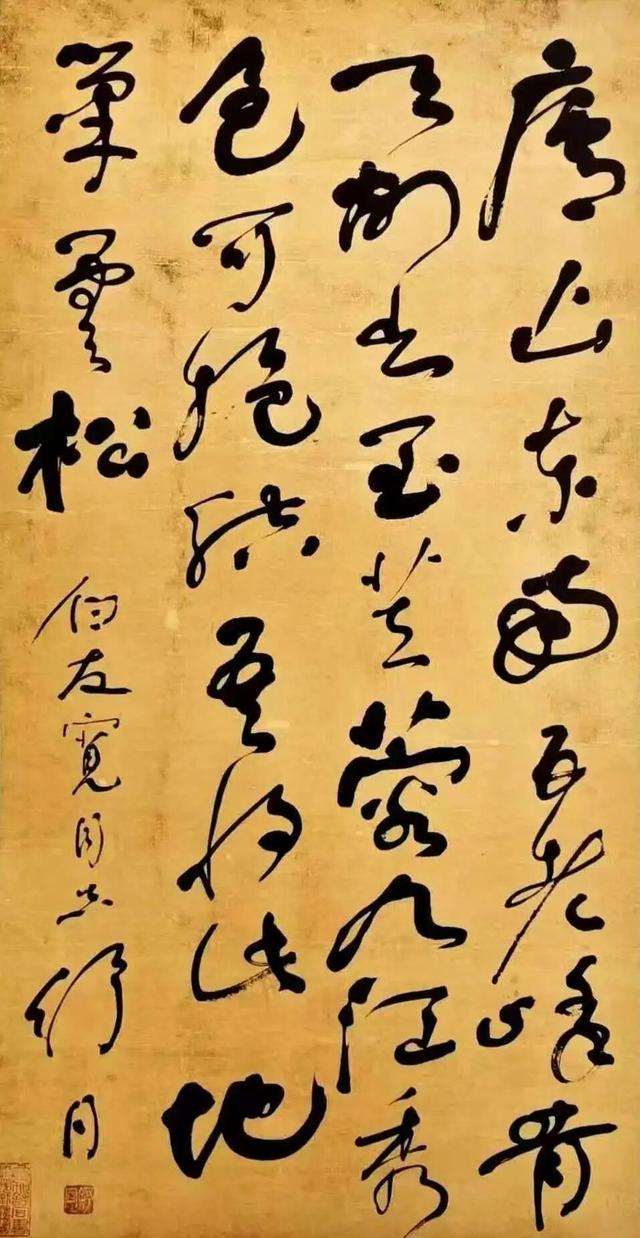 廬山東南五老峰青
天削出金芙蓉九江秀
色可攬結吾將此地
巢雲松
友寬同志舒同